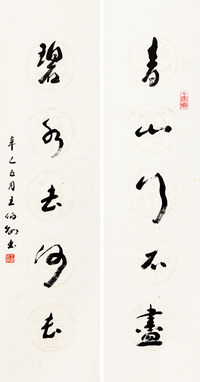 青山行不盡
碧水去何長
辛巳五月王伯勋书